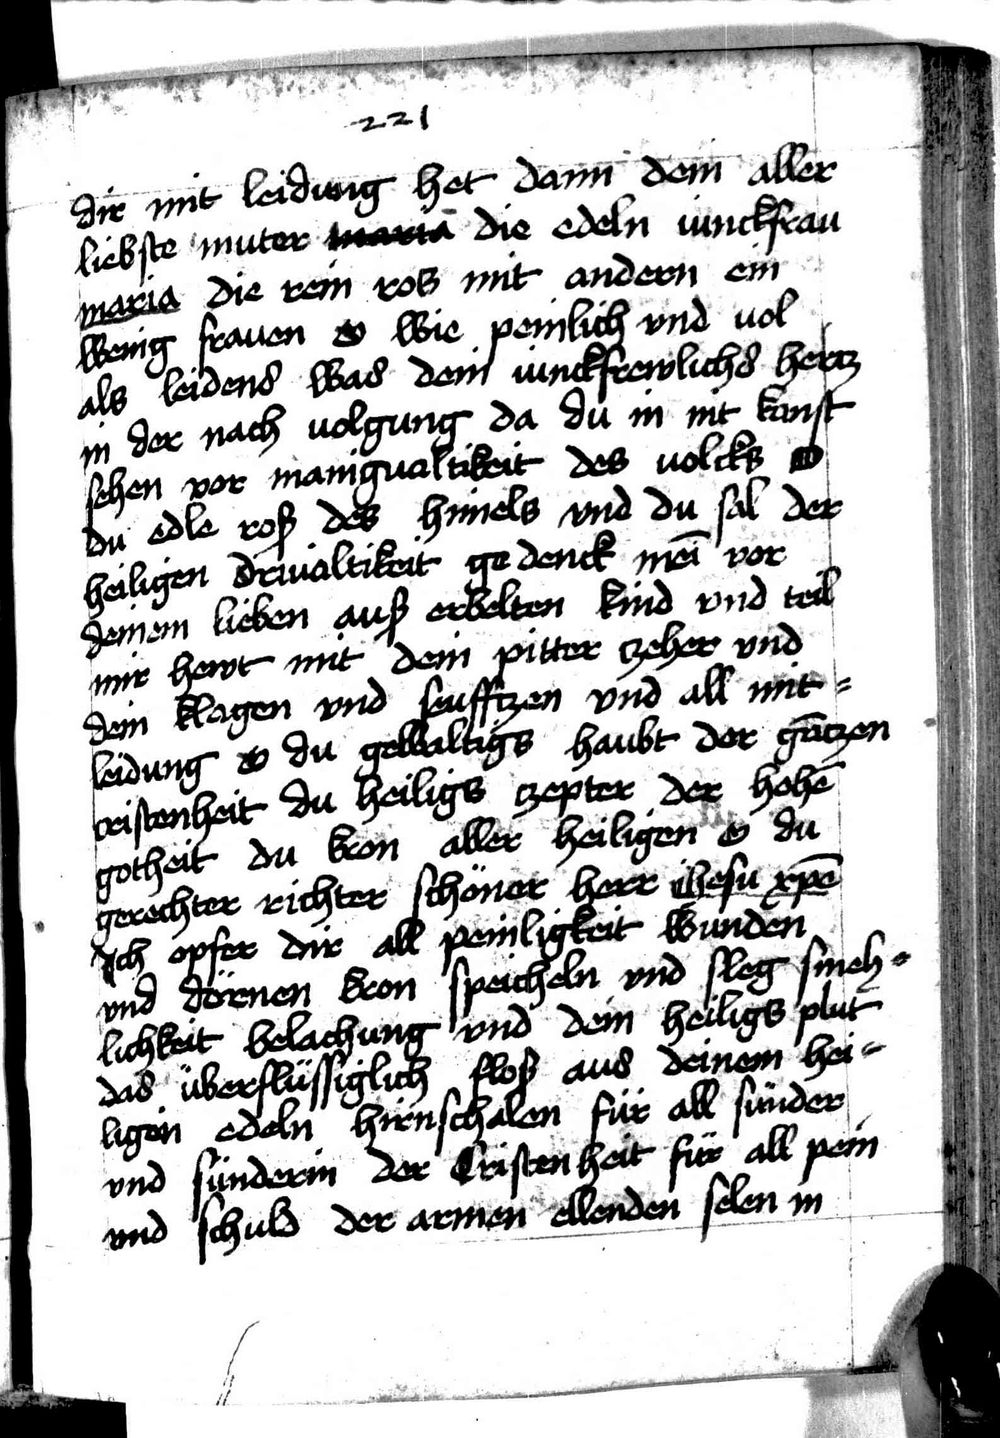 221
dir mit leidung het dann dein aller
liebste muter maria die edeln iunckfrau
maria die rein ros mit andern ein
wenig frauen o wie peinlich vnd vol
als leidens was dein iunckfrewlichs hertz
in der nach uolgung da du in nit kanst
sehen vor manigualtikeit des uolcks o
du edle roß des himels vnd du sal der
heiligen driualtikeit gedenck mei̅ vor
deinem lieben auß erbelten kind vnd teil
mir hewt mit dein pitter zeher vnd
dein klagen vnd seufftzen vnd all mit=
leidung o du gewaltigs haubt der ga̅tzen
cristenheit du heiligs zepter der hohe̅
gotheit du kron aller heiligen o du
gerechter richter schöner herr ihesu xpe̅
Ich opfer dir all peinligkeit wunden
vnd dörnen kron speicheln vnd sleg smeh=
lichkeit belachung vnd dein heiligs plut
das überflüssiglich floß aus deinem hei=
ligen edeln hirnschalen für all sünder
vnd sünderin der Cristenheit für all pein
vnd schuld der armen ellenden selen in